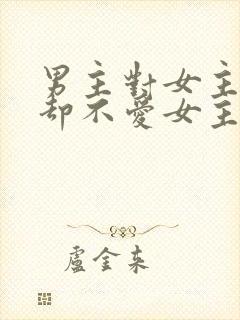 男主對女主
却不愛女主
盧金来